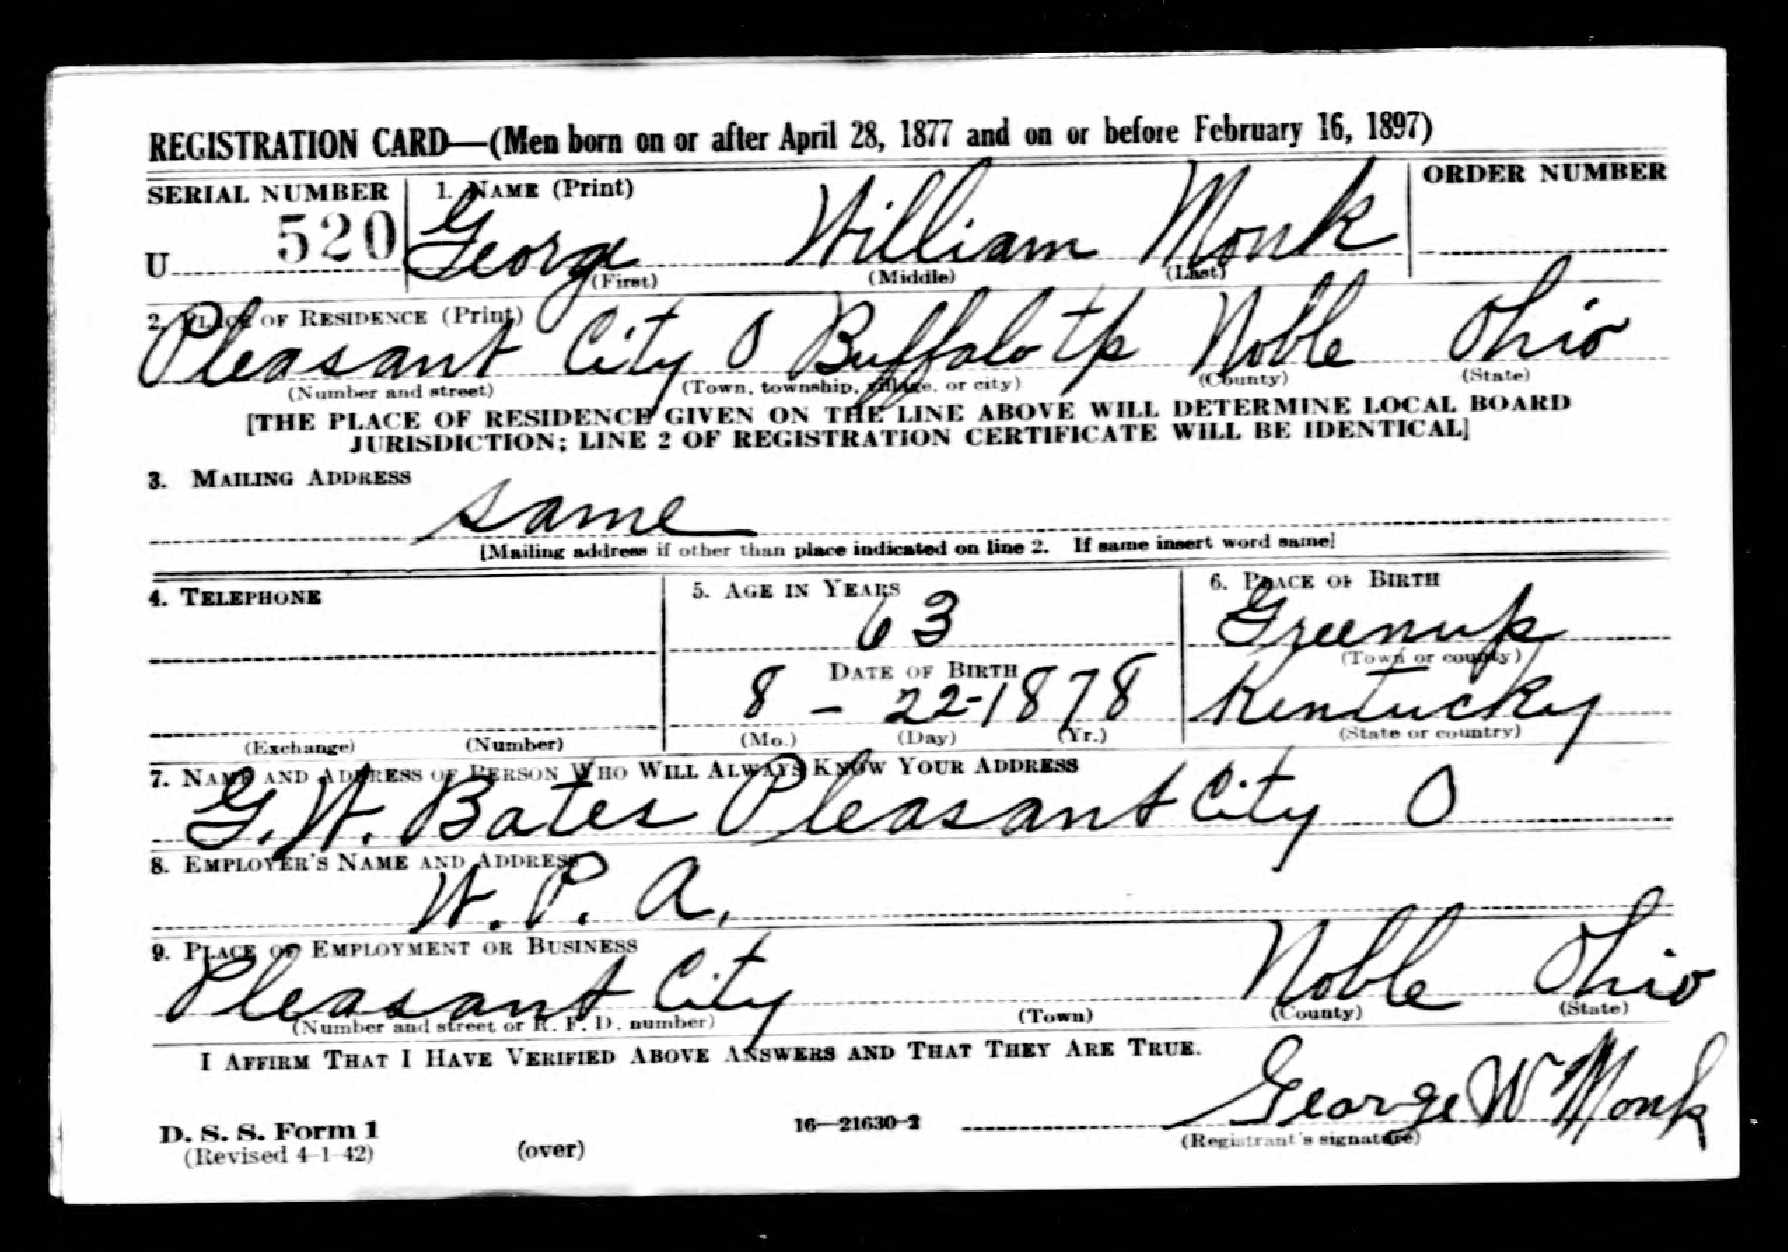 REGISTRATION CARD—(Men born on or after April 28, 1877 and on or before February 16, 1897)
SERIAL NUMBER
1. NAME (Print)
ORDER NUMBER
U 520
George William Monk
(First) (Middle) (Last)
2. PLACE OF RESIDENCE (Print)
Pleasant City O Buffalo tp Noble Ohio
(Number and street) (Town, township, village, or city) (County) (State)
[THE PLACE OF RESIDENCE GIVEN ON THE LINE ABOVE WILL DETERMINE LOCAL BOARD
JURISDICTION; LINE 2 OF REGISTRATION CERTIFICATE WILL BE IDENTICAL]
3. MAILING ADDRESS
same
[Mailing address if other than place indicated on line 2. If same insert word same]
4. TELEPHONE
5. AGE IN YEARS
6. PLACE OF BIRTH
63
Greenup
(Town or county)
DATE OF BIRTH
8 - 22-1878
Kentucky
(Exchange) (Number)
(Mo.) (Day) (Yr.)
(State or country)
7. NAME AND ADDRESS OF PERSON WHO WILL ALWAYS KNOW YOUR ADDRESS
G. W. Bates Pleasant City O
8. EMPLOYER'S NAME AND ADDRESS
W. P. A.
9. PLACE OF EMPLOYMENT OR BUSINESS
Pleasant City Noble Ohio
(Number and street or R. F. D. number) (Town) (County) (State)
I AFFIRM THAT I HAVE VERIFIED ABOVE ANSWERS AND THAT THEY ARE TRUE.
George W Monk
D. S. S. Form 1
(Revised 4-1-42)
(over)
16—21630-2
(Registrant's signature)